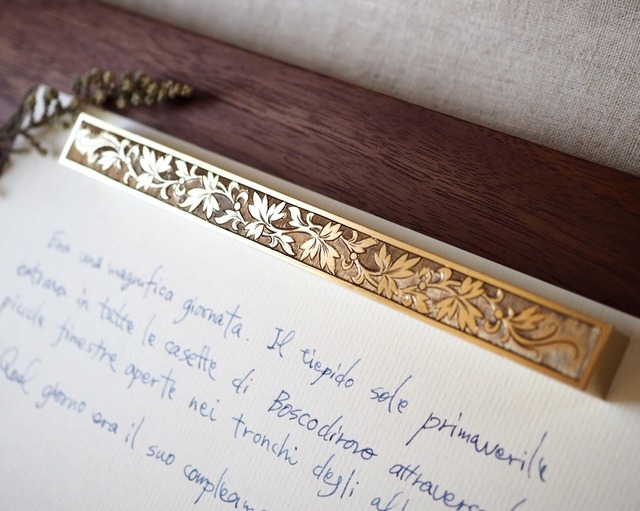 Era una magnifica giornata. Il tiepido sole primaverile
entrava in tutte le casette di Boscodirovo attraverso
piccole finestre aperte nei tronchi degli
Quel giorno era il suo